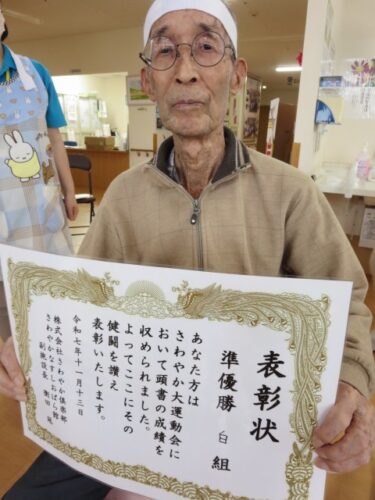 表彰状
準優勝 白組
あなた方は
さわやか大運動会に
おいて頭書の成績を
収められました。
よってここにその
健闘を讃え
表彰いたします。
令和七年十一月十三日
株式会社さわやか倶楽部
さわやかなすしおばら館
副施設長